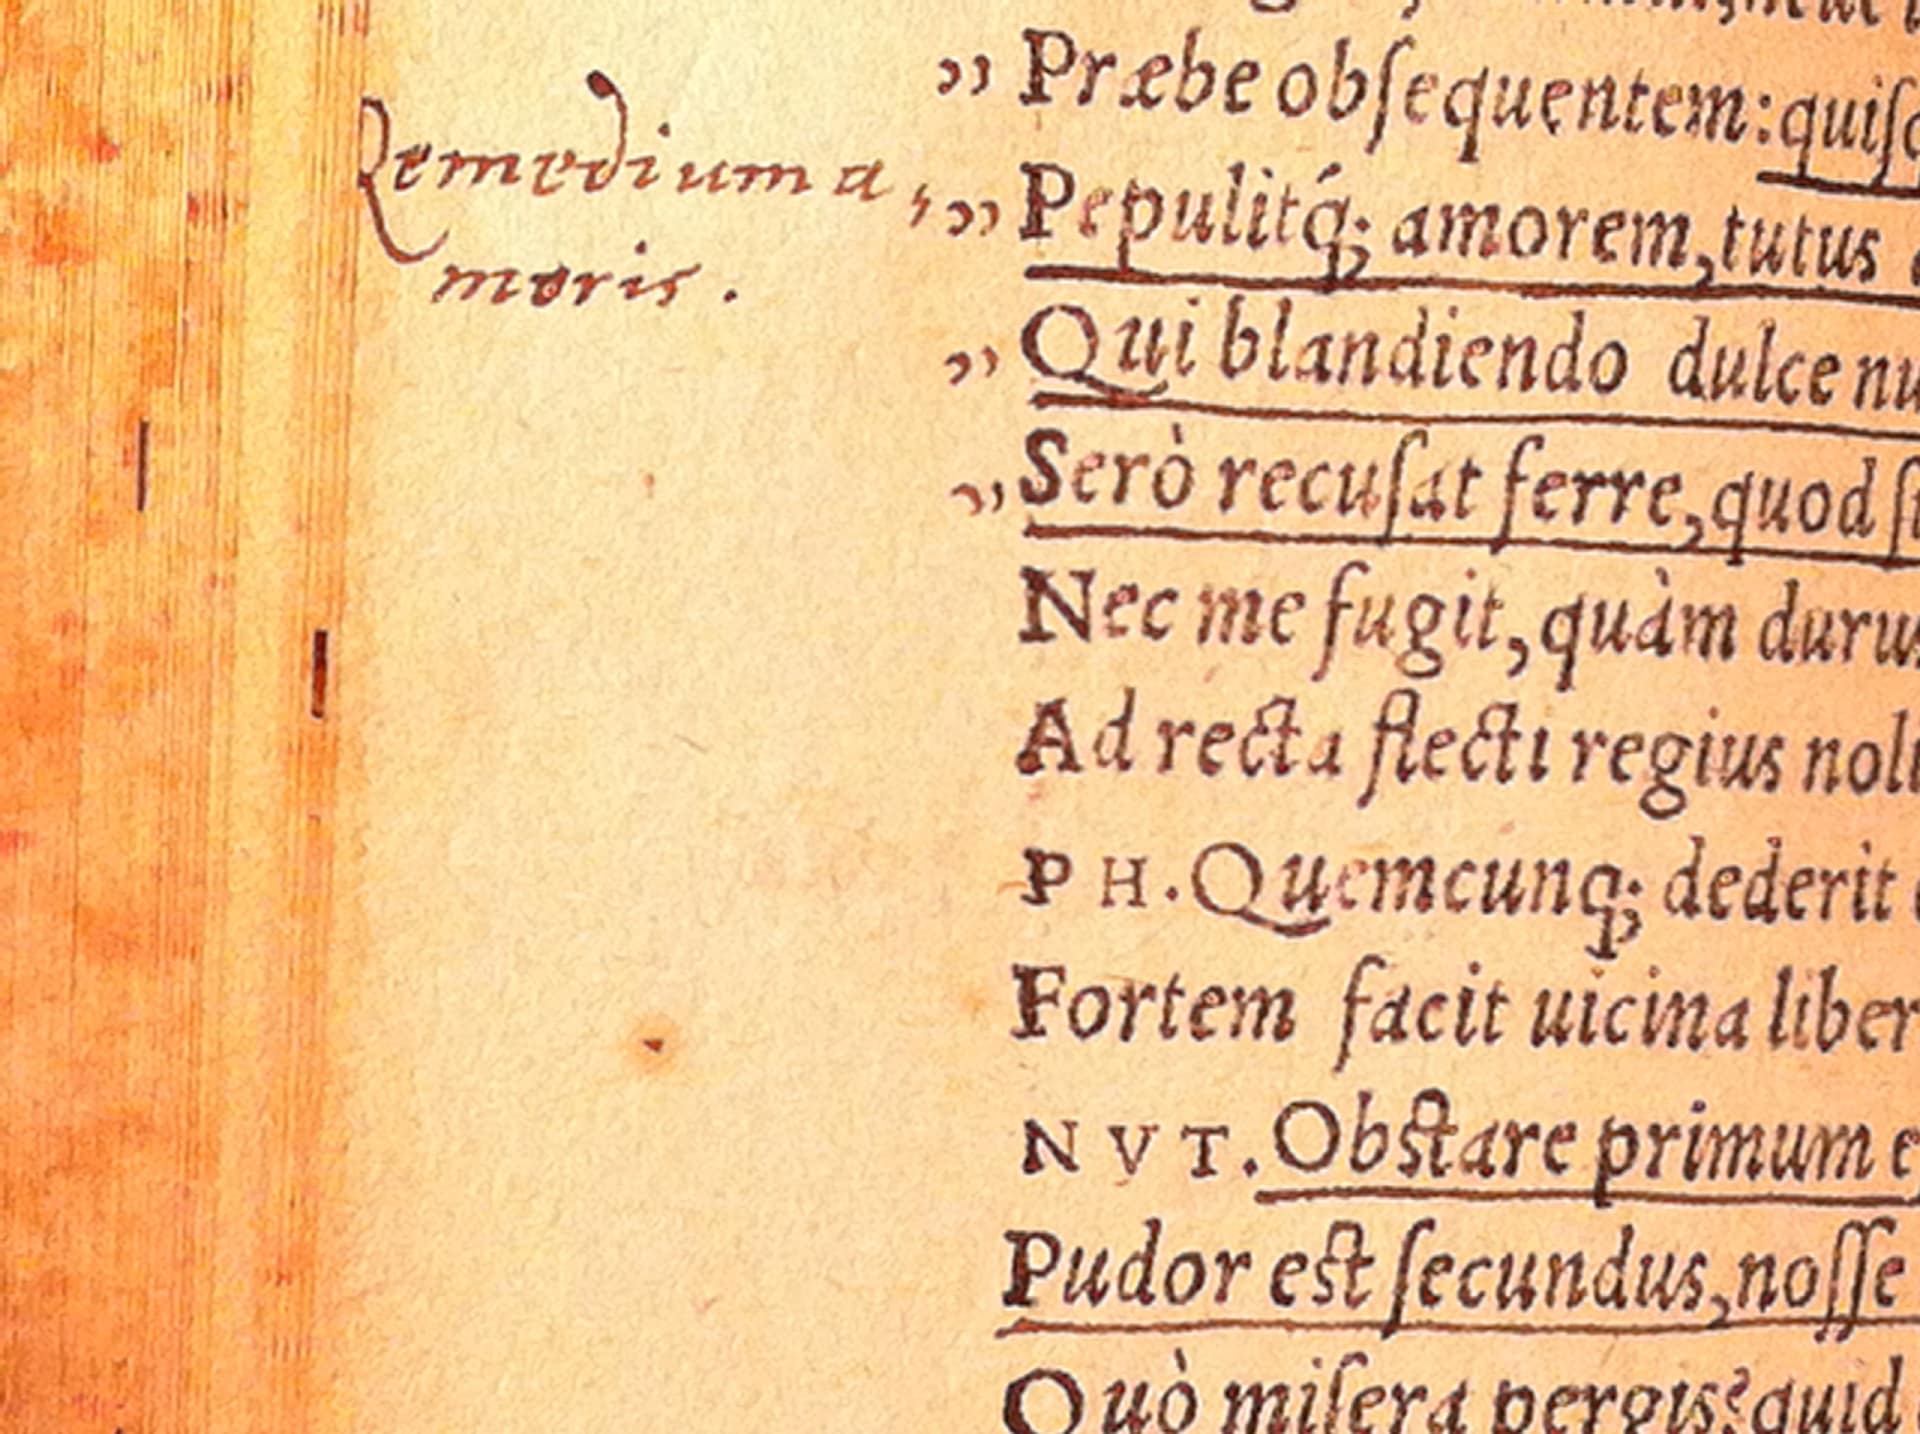 Remedium a,
moris.
,, Præbe obſequentem: quiſq
,, Pepulitq́; amorem, tutus
,, Qui blandiendo dulce nu
,, Serò recuſat ferre, quod ſu
Nec me fugit, quàm durus
Ad recta flecti regius noli
PH. Quemcunq; dederit
Fortem facit uicina liber
NVT. Obstare primum e
Pudor est ſecundus, noſſe
Quò miſera pergis? quid